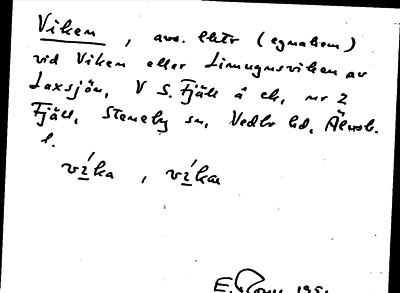 Viken, avs. lhtr (egnahem)
vid Viken eller Limugnsviken av
Laxsjön, V S. Fjäll å ek, nr 2
Fjäll, Steneby sn, Vedbo hd, Älvsb.
l.
víka, víkan
E.